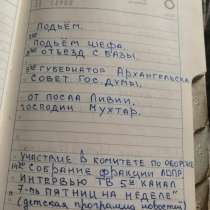 ПОДЪЁМ.
ПОДЪЕМ ШЕФА.
ОТЪЕЗД С БАЗЫ.
ГУБЕРНАТОР АРХАНГЕЛЬСКА
СОВЕТ ГОС. ДУМЫ.
ОТ ПОСЛА ЛИВИИ.
ГОСПОДИН МУХТАР.
УЧАСТИЕ В КОМИТЕТЕ ПО ОБОРОНЕ
СОБРАНИЕ ФРАКЦИИ ЛДПР
ИНТЕРВЬЮ ТВ 5ый КАНАЛ
„7-ПЬ ПЯТНИЦ НА НЕДЕЛЕ"
(детская программа новости)